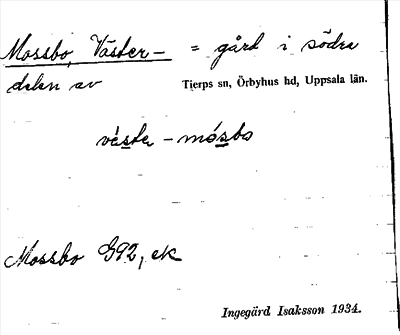 Mossbo, Väster- = gård i södra
delen av Tierps sn, Örbyhus hd, Uppsala län.
väste - mósbo
Mossbo G92, ek
Ingegärd Isaksson 1934.